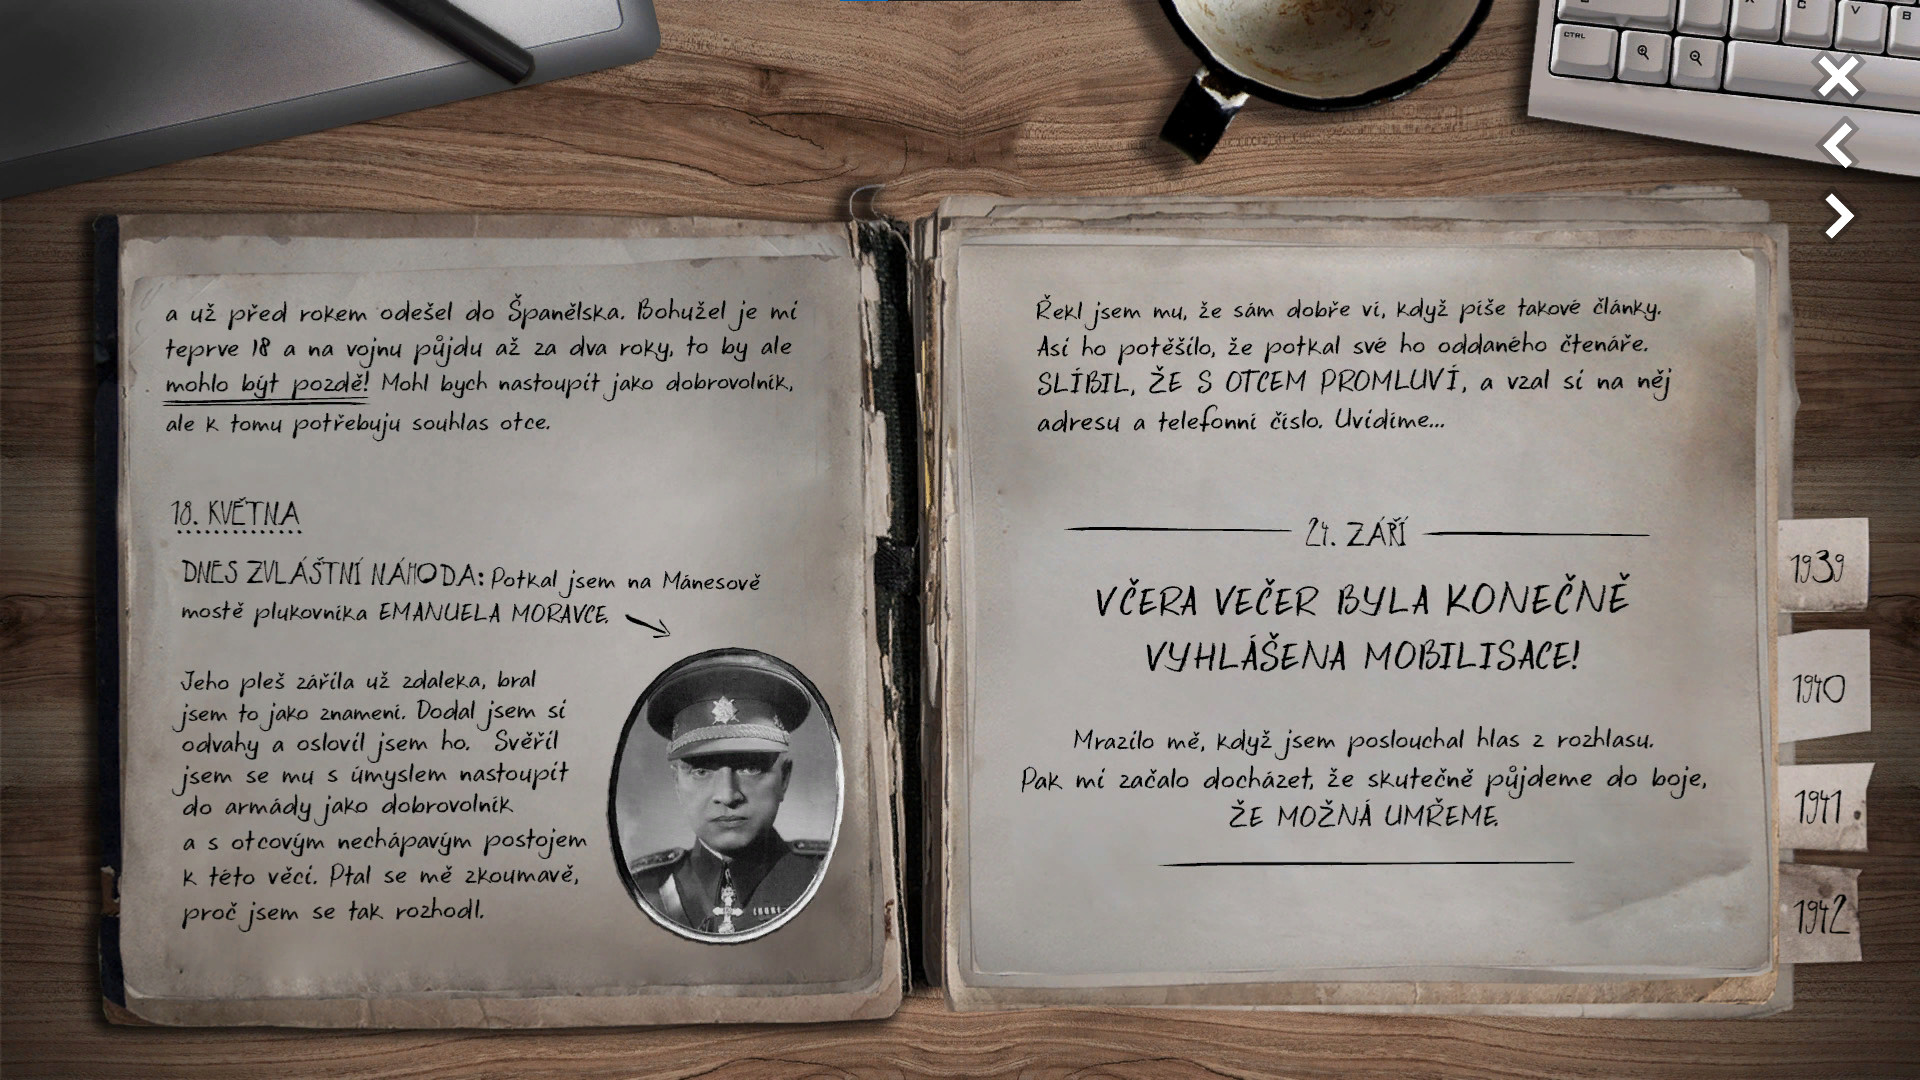 a už před rokem odešel do Španělska. Bohužel je mi
teprve 18 a na vojnu půjdu až za dva roky, to by ale
mohlo být pozdě! Mohl bych nastoupit jako dobrovolník,
ale k tomu potřebuju souhlas otce.
18. KVĚTNA
DNES ZVLÁŠTNÍ NÁHODA: Potkal jsem na Mánesově
mostě plukovníka EMANUELA MORAVCE.
Jeho pleš zářila už zdaleka, bral
jsem to jako znamení. Dodal jsem si
odvahy a oslovil jsem ho. Svěřil
jsem se mu s úmyslem nastoupit
do armády jako dobrovolník
a s otcovým nechápavým postojem
k této věci. Ptal se mě zkoumavě,
proč jsem se tak rozhodl.
Řekl jsem mu, že sám dobře ví, když píše takové články.
Asi ho potěšilo, že potkal své ho oddaného čtenáře.
SLÍBIL, ŽE S OTCEM PROMLUVÍ, a vzal si na něj
adresu a telefonní číslo. Uvidíme...
24. ZÁŘÍ
VČERA VEČER BYLA KONEČNĚ
VYHLÁŠENA MOBILISACE!
Mrazilo mě, když jsem poslouchal hlas z rozhlasu.
Pak mi začalo docházet, že skutečně půjdeme do boje,
ŽE MOŽNÁ UMŘEME.
1939
1940
1941
1942
CTRL
C
V
B